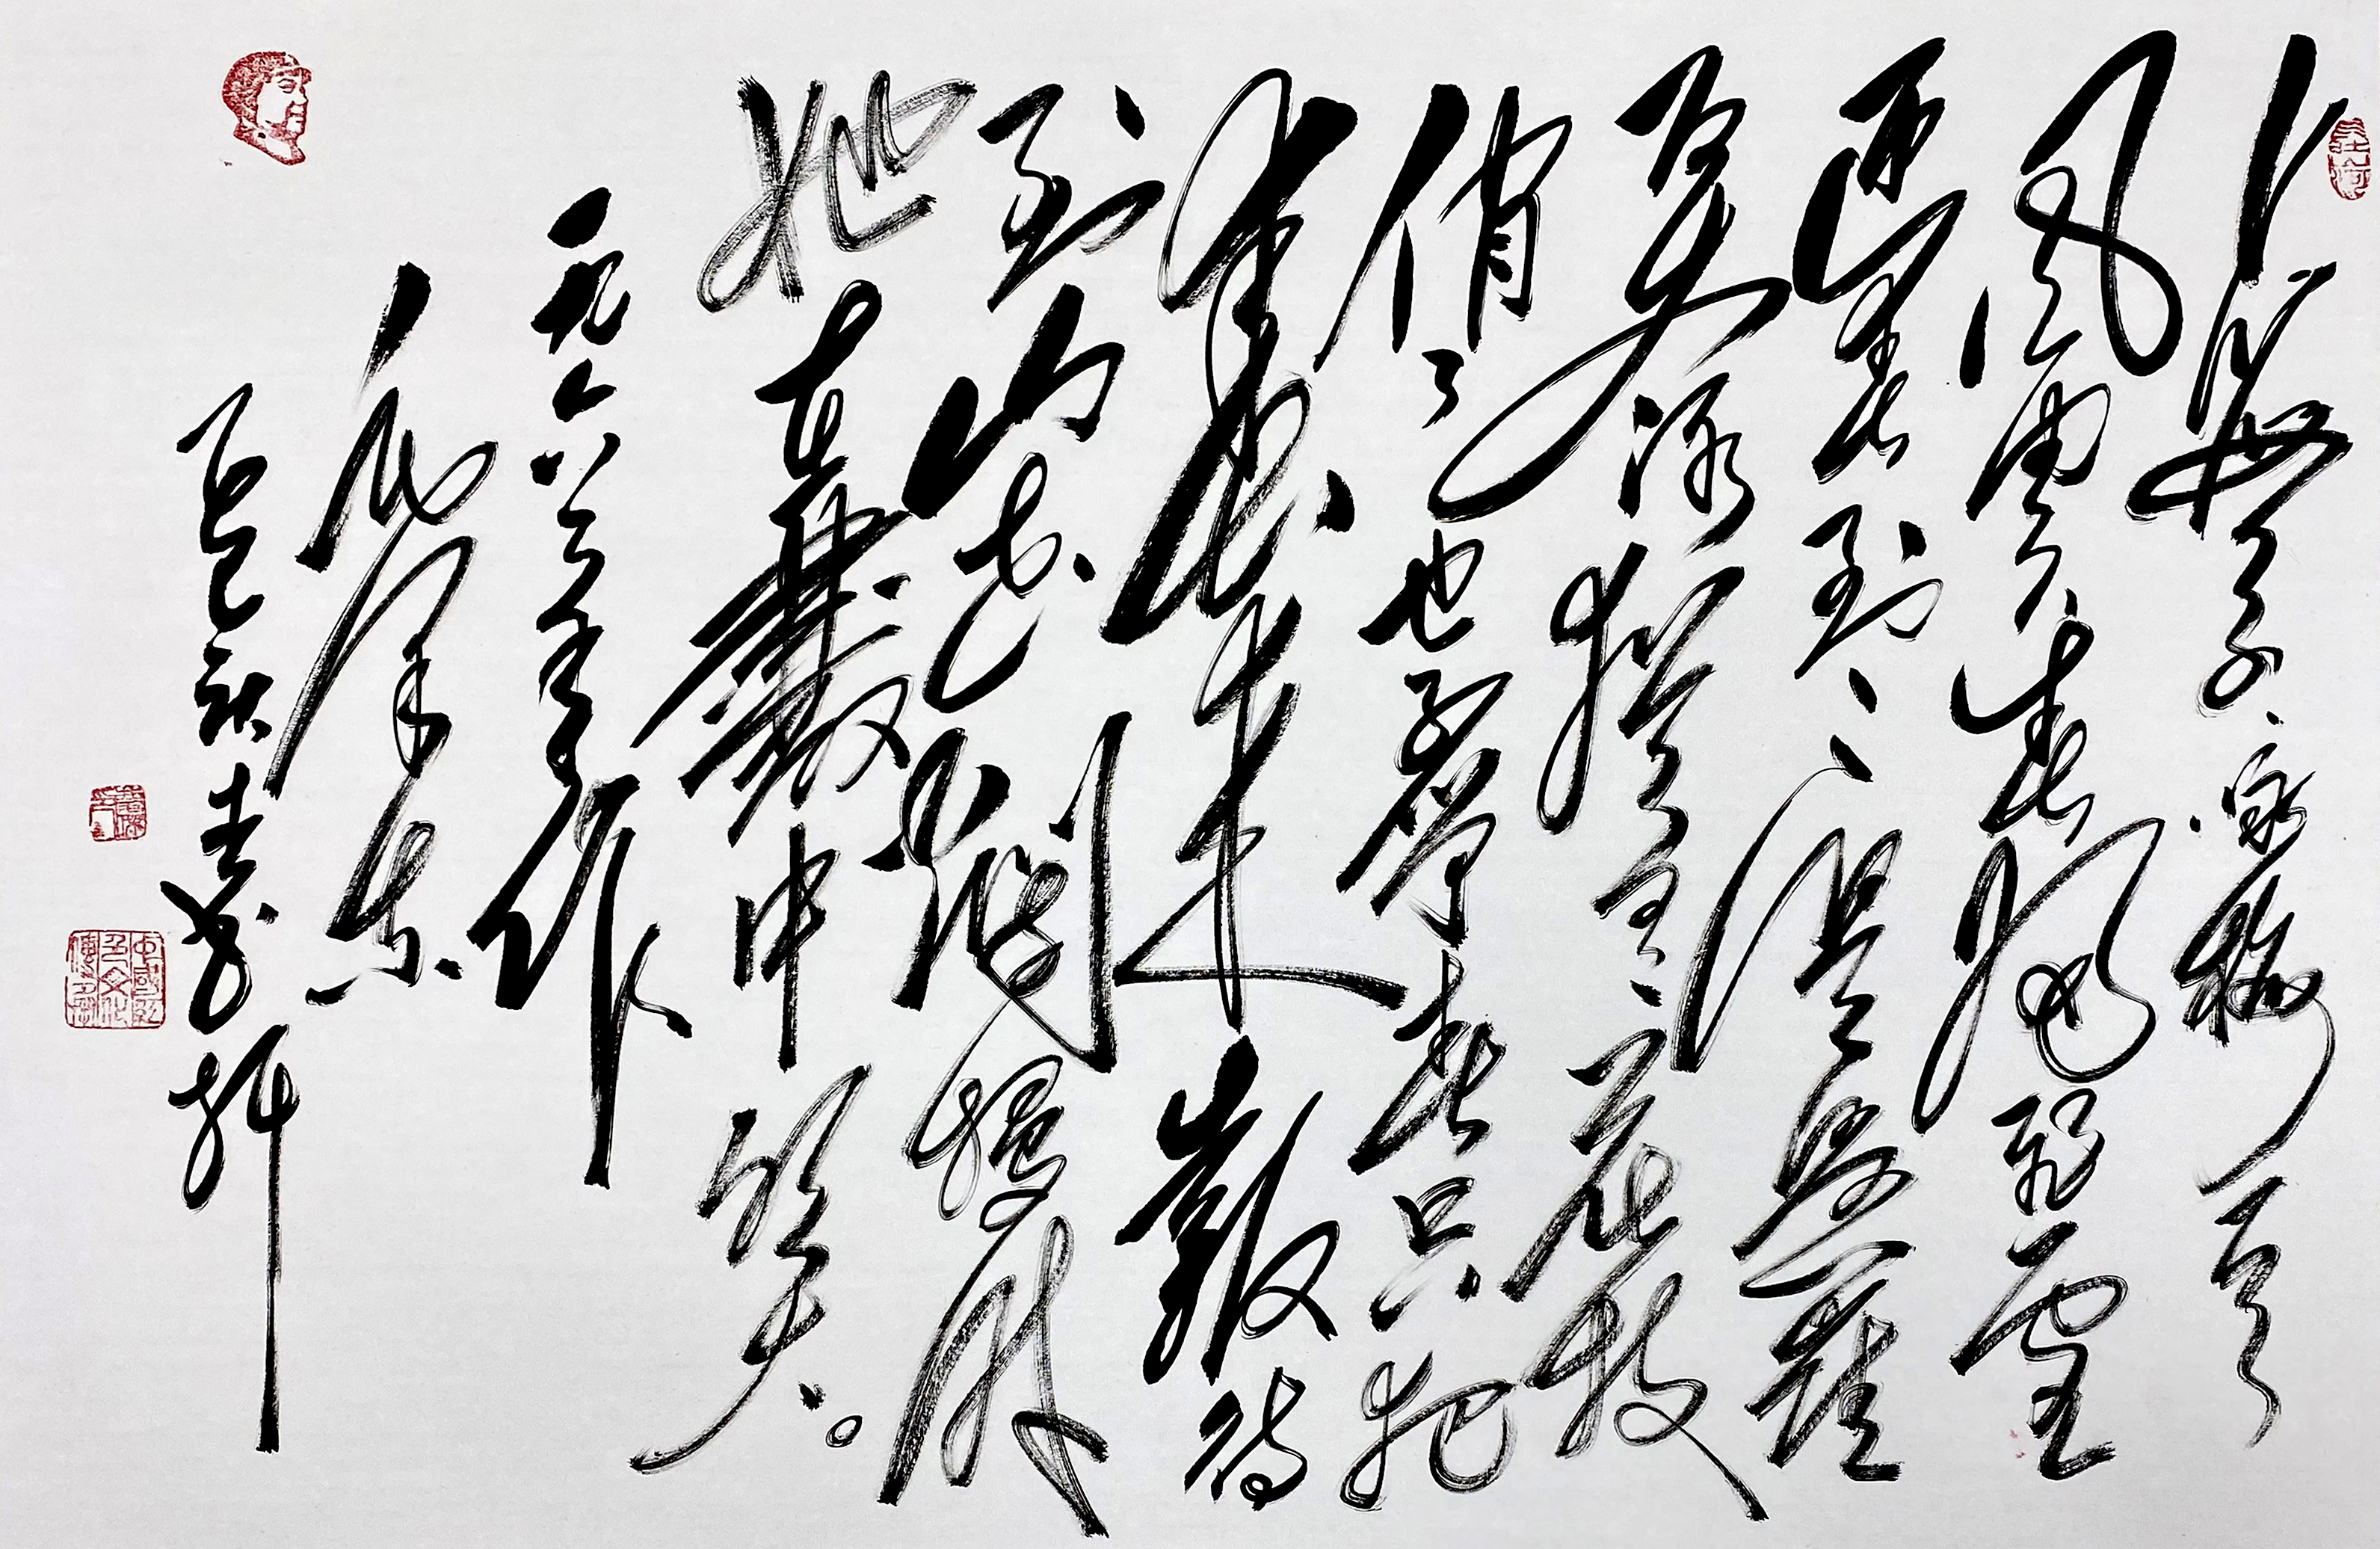 卜算子·咏梅
风雨送春归飞雪
迎春到已是悬崖
百丈冰犹有花枝
俏々也不争春只把
春来報待
到山花烂漫时
她在叢中笑。
一九六一年作
毛泽东
乙巳秋